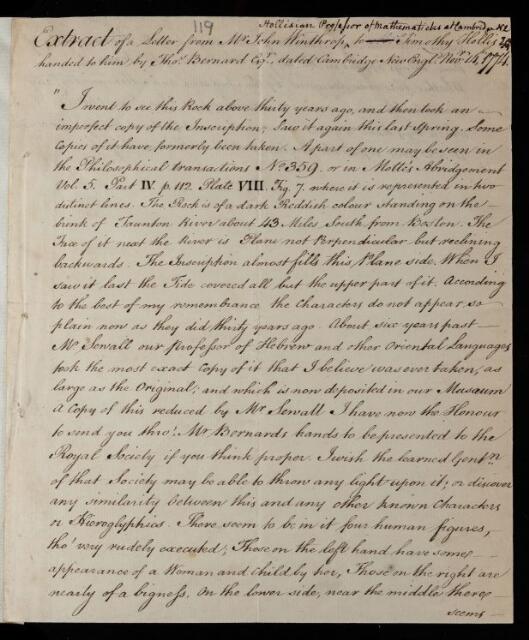 119
Hollisian Professor of Mathematicks at Cambridge NE
Extract of a Letter from Mr. John Winthrop, to Timothy Hollis
handed to him by Thos. Bernard Esqr., dated Cambridge New Engld. Novr. 1774.
"I went to see this Rock above thirty years ago, and then took an
imperfect copy of the Inscription; Saw it again this last Spring. Some
Copies of it have formerly been taken. A part of one may be seen in
the Philosophical transactions No. 359. or in Mottes Abridgement
Vol. 5. Part IV. p. 112. Plate VIII. Fig. 7. where it is represented in two
distinct lines. The Rock is of a dark Reddish colour standing on the
bank of Taunton River about 43 Miles South from Boston. The
Face of it next the River is Plane not Perpendicular but reclining
backwards. The Inscription almost fills this Plane side. When I
saw it last the Tide covered all but the upper part of it. According
to the best of my remembrance the Characters do not appear so
plain now as they did thirty years ago. About six years past
Mr. Sewall our Professor of Hebrew and other Oriental Languages
took the most exact Copy of it that I believe was ever taken, as
large as the Original; and which is now deposited in our Musæum
A Copy of this reduced by Mr. Sewall I have now the Honour
to send you thro' Mr. Bernards hands to be presented to the
Royal Society if you think proper. I wish the learned Gentn.
of that Society may be able to throw any light upon it; or discover
any similarity between this and any other known Characters
or Hieroglyphics. There seem to be in it four human figures,
tho' very rudely executed; Those on the left hand have some
appearance of a Woman and Child by her, Those on the right are
nearly of a bigness. On the lower side, near the middle there
seems